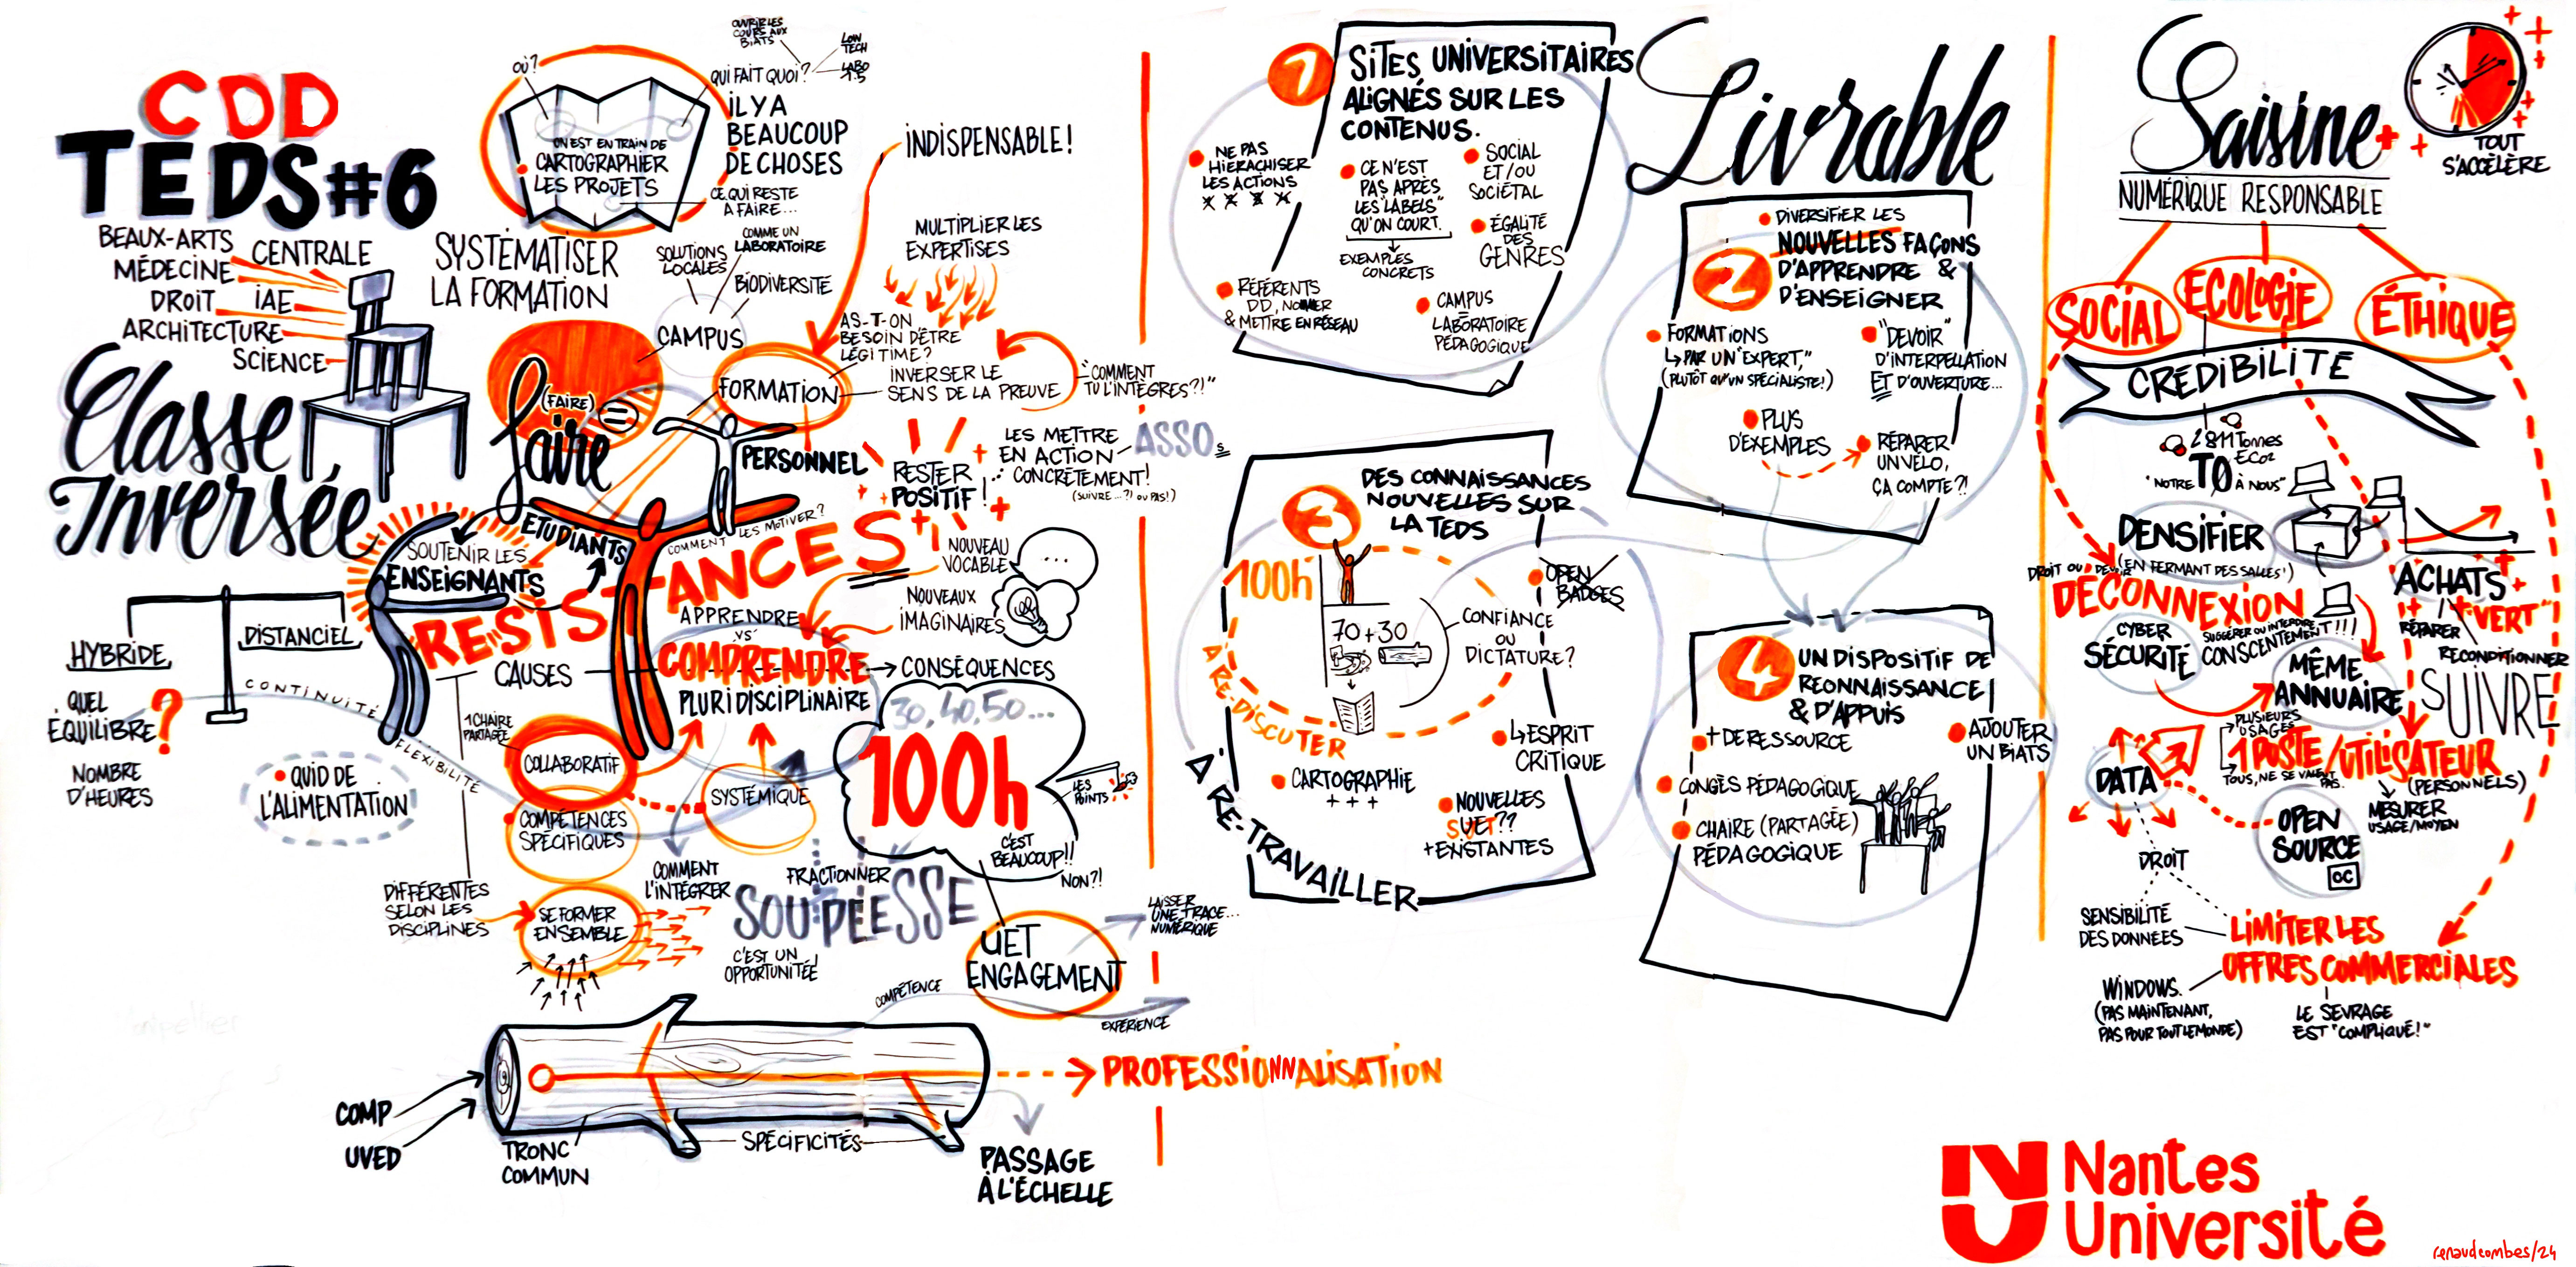 CDD
TEDS#6
BEAUX-ARTS
MÉDECINE
DROIT
ARCHITECTURE
SCIENCE
CENTRALE
IAE
Classe
Inversée
OÙ?
OUVRIR LES
COURS AUX
BIATS
LOW
TECH
LABO
1.5
QUI FAIT QUOI?
ON EST EN TRAIN DE
CARTOGRAPHIER
LES PROJETS
IL Y A
BEAUCOUP
DE CHOSES
CE QUI RESTE
À FAIRE...
SYSTÉMATISER
LA FORMATION
SOLUTIONS
LOCALES
COMME UN
LABORATOIRE
BIODIVERSITÉ
CAMPUS
INDISPENSABLE!
MULTIPLIER LES
EXPERTISES
AS-T-ON
BESOIN D'ÊTRE
LÉGITIME?
INVERSER LE
SENS DE LA PREUVE
"COMMENT
TU L'INTÈGRES?!"
FORMATION
(FAIRE)
faire
=
PERSONNEL
RESTER
POSITIF!
LES METTRE
EN ACTION
CONCRÈTEMENT!
(SUIVRE...?! OU PAS!)
ASSOs
ÉTUDIANTS
COMMENT LES MOTIVER?
SOUTENIR LES
ENSEIGNANTS
RESISTANCES
NOUVEAU
VOCABLE
...
NOUVEAUX
IMAGINAIRES
HYBRIDE
DISTANCIEL
QUEL
ÉQUILIBRE?
NOMBRE
D'HEURES
CONTINUITÉ
FLEXIBILITÉ
QUID DE
L'ALIMENTATION
CAUSES
APPRENDRE
VS
COMPRENDRE
PLURIDISCIPLINAIRE
CONSÉQUENCES
1 CHAIRE
PARTAGÉE
COLLABORATIF
COMPÉTENCES
SPÉCIFIQUES
SYSTÉMIQUE
30, 40, 50...
100h
C'EST
BEAUCOUP!!
NON?!
LES
POINTS
DIFFÉRENTES
SELON LES
DISCIPLINES
SE FORMER
ENSEMBLE
COMMENT
L'INTÉGRER
FRACTIONNER
SOUPLESSE
C'EST UN
OPPORTUNITÉ!
UET
ENGAGEMENT
LAISSER
UNE TRACE...
NUMÉRIQUE
COMPÉTENCE
EXPÉRIENCE
COMP
UVED
TRONC
COMMUN
SPÉCIFICITÉS
PROFESSIONNALISATION
PASSAGE
À L'ÉCHELLE
Montpellier
Livrable
1
SITES UNIVERSITAIRES
ALIGNÉS SUR LES
CONTENUS.
NE PAS
HIÉRACHISER
LES ACTIONS
CE N'EST
PAS APRÈS
LES "LABELS"
QU'ON COURT.
EXEMPLES
CONCRETS
SOCIAL
ET/OU
SOCIÉTAL
ÉGALITÉ
DES
GENRES
RÉFÉRENTS
DD, NOMMER
& METTRE EN RÉSEAU
CAMPUS
=
LABORATOIRE
PÉDAGOGIQUE
2
DIVERSIFIER LES
NOUVELLES FAÇONS
D'APPRENDRE &
D'ENSEIGNER
FORMATIONS
PAR UN "EXPERT,"
(PLUTÔT QU'UN SPÉCIALISTE!)
"DEVOIR"
D'INTERPELLATION
ET D'OUVERTURE...
PLUS
D'EXEMPLES
RÉPARER
UN VÉLO,
ÇA COMPTE?!
3
DES CONNAISSANCES
NOUVELLES SUR
LA TEDS
100h
À RE-DISCUTER
70+30
CONFIANCE
OU
DICTATURE?
OPEN
BADGES
ESPRIT
CRITIQUE
CARTOGRAPHIE
+++
NOUVELLES
UET??
+ EXISTANTES
À RE-TRAVAILLER
4
UN DISPOSITIF DE
REONNAISSANCE
& D'APPUIS
+ DE RESSOURCE
AJOUTER
UN BIATS
CONGÈS PÉDAGOGIQUE
CHAIRE (PARTAGÉE)
PÉDAGOGIQUE
Saisine
NUMÉRIQUE RESPONSABLE
TOUT
S'ACCÉLÈRE
SOCIAL
ECOLOGIE
ÉTHIQUE
CRÉDIBILITÉ
2811 Tonnes
ECO2
"NOTRE T0 À NOUS"
DENSIFIER
(EN FERMANT DES SALLES')
DROIT OU DEVOIR
DECONNEXION
SUGGÉRER OU INTERDIRE
CONSCIENTEMENT!!!
CYBER
SÉCURITÉ
ACHATS
"VERT"
RÉPARER
RECONDITIONNER
MÊME
ANNUAIRE
SUIVRE
PLUSIEURS
USAGES
1 POSTE/UTILISATEUR
TOUS, NE SE VALENT
PAS.
(PERSONNELS)
MESURER
USAGE/MOYEN
DATA
OPEN
SOURCE
OC
DROIT
SENSIBILITÉ
DES DONNÉES
LIMITER LES
OFFRES COMMERCIALES
WINDOWS.
(PAS MAINTENANT,
PAS POUR TOUT LE MONDE)
LE SEVRAGE
EST "COMPLIQUÉ!"
Nantes
Université
renaudcombes/24